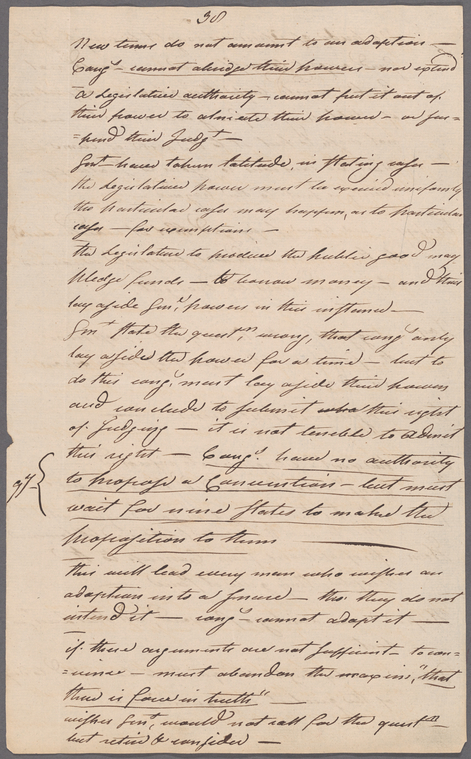 38
New terms do not amount to an adoption —
Congs. cannot abridge their powers — nor extend
a Legislative authority — cannot put it out of
their power to alienate their power — or sus-
=pend their Judgt —
Gent. have taken latitude, in stating cases —
the Legislative power must be exercised uniformly
tho particular cases may happen, as to particular
cases — for exemptions —
the Legislature to produce the public good may
Pledge funds — to borrow money — and thus
lay aside Genl. powers in this instance —
Gent. state the questn. wrong, that congs. only
lay aside the power for a time — but to
do this congs. must lay aside their powers
and conclude to submit this right
of Judging — it is not tenable to admit
this right — Congs. have no authority
to propose a Convention — but must
wait for nine States to make the
proposition to them
qy
this will lead every man who wishes an
adoption into a snare — tho: they do not
intend it — congs cannot adopt it —
if these arguments are not sufficient to con-
=vince — must abandon the maxim, "that
there is force in truth" —
wishes Gent. would not call for the questn
but retire & consider —